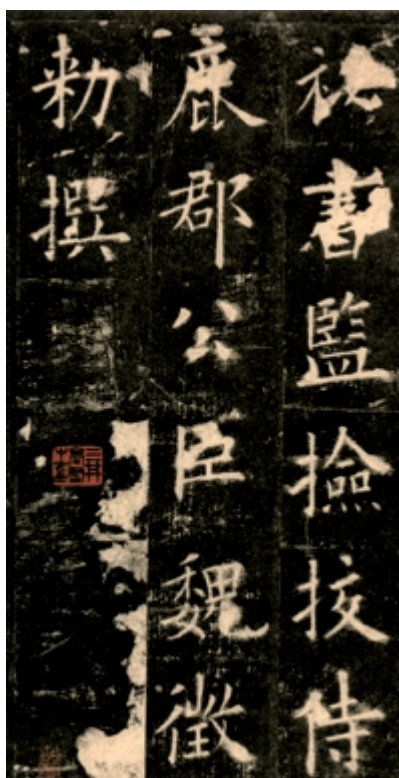 秘書監撿挍侍
鹿郡公臣魏徵
勑撰